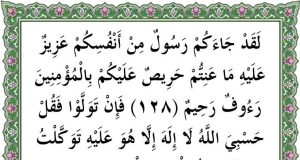 لَقَدْ جَاءَكُمْ رَسُولٌ مِنْ أَنْفُسِكُمْ عَزِيزٌ
عَلَيْهِ مَا عَنِتُّمْ حَرِيصٌ عَلَيْكُمْ بِالْمُؤْمِنِينَ
رَءُوفٌ رَحِيمٌ (١٢٨) فَإِنْ تَوَلَّوْا فَقُلْ
حَسْبِيَ اللَّهُ لَا إِلَهَ إِلَّا هُوَ عَلَيْهِ تَوَكَّلْتُ